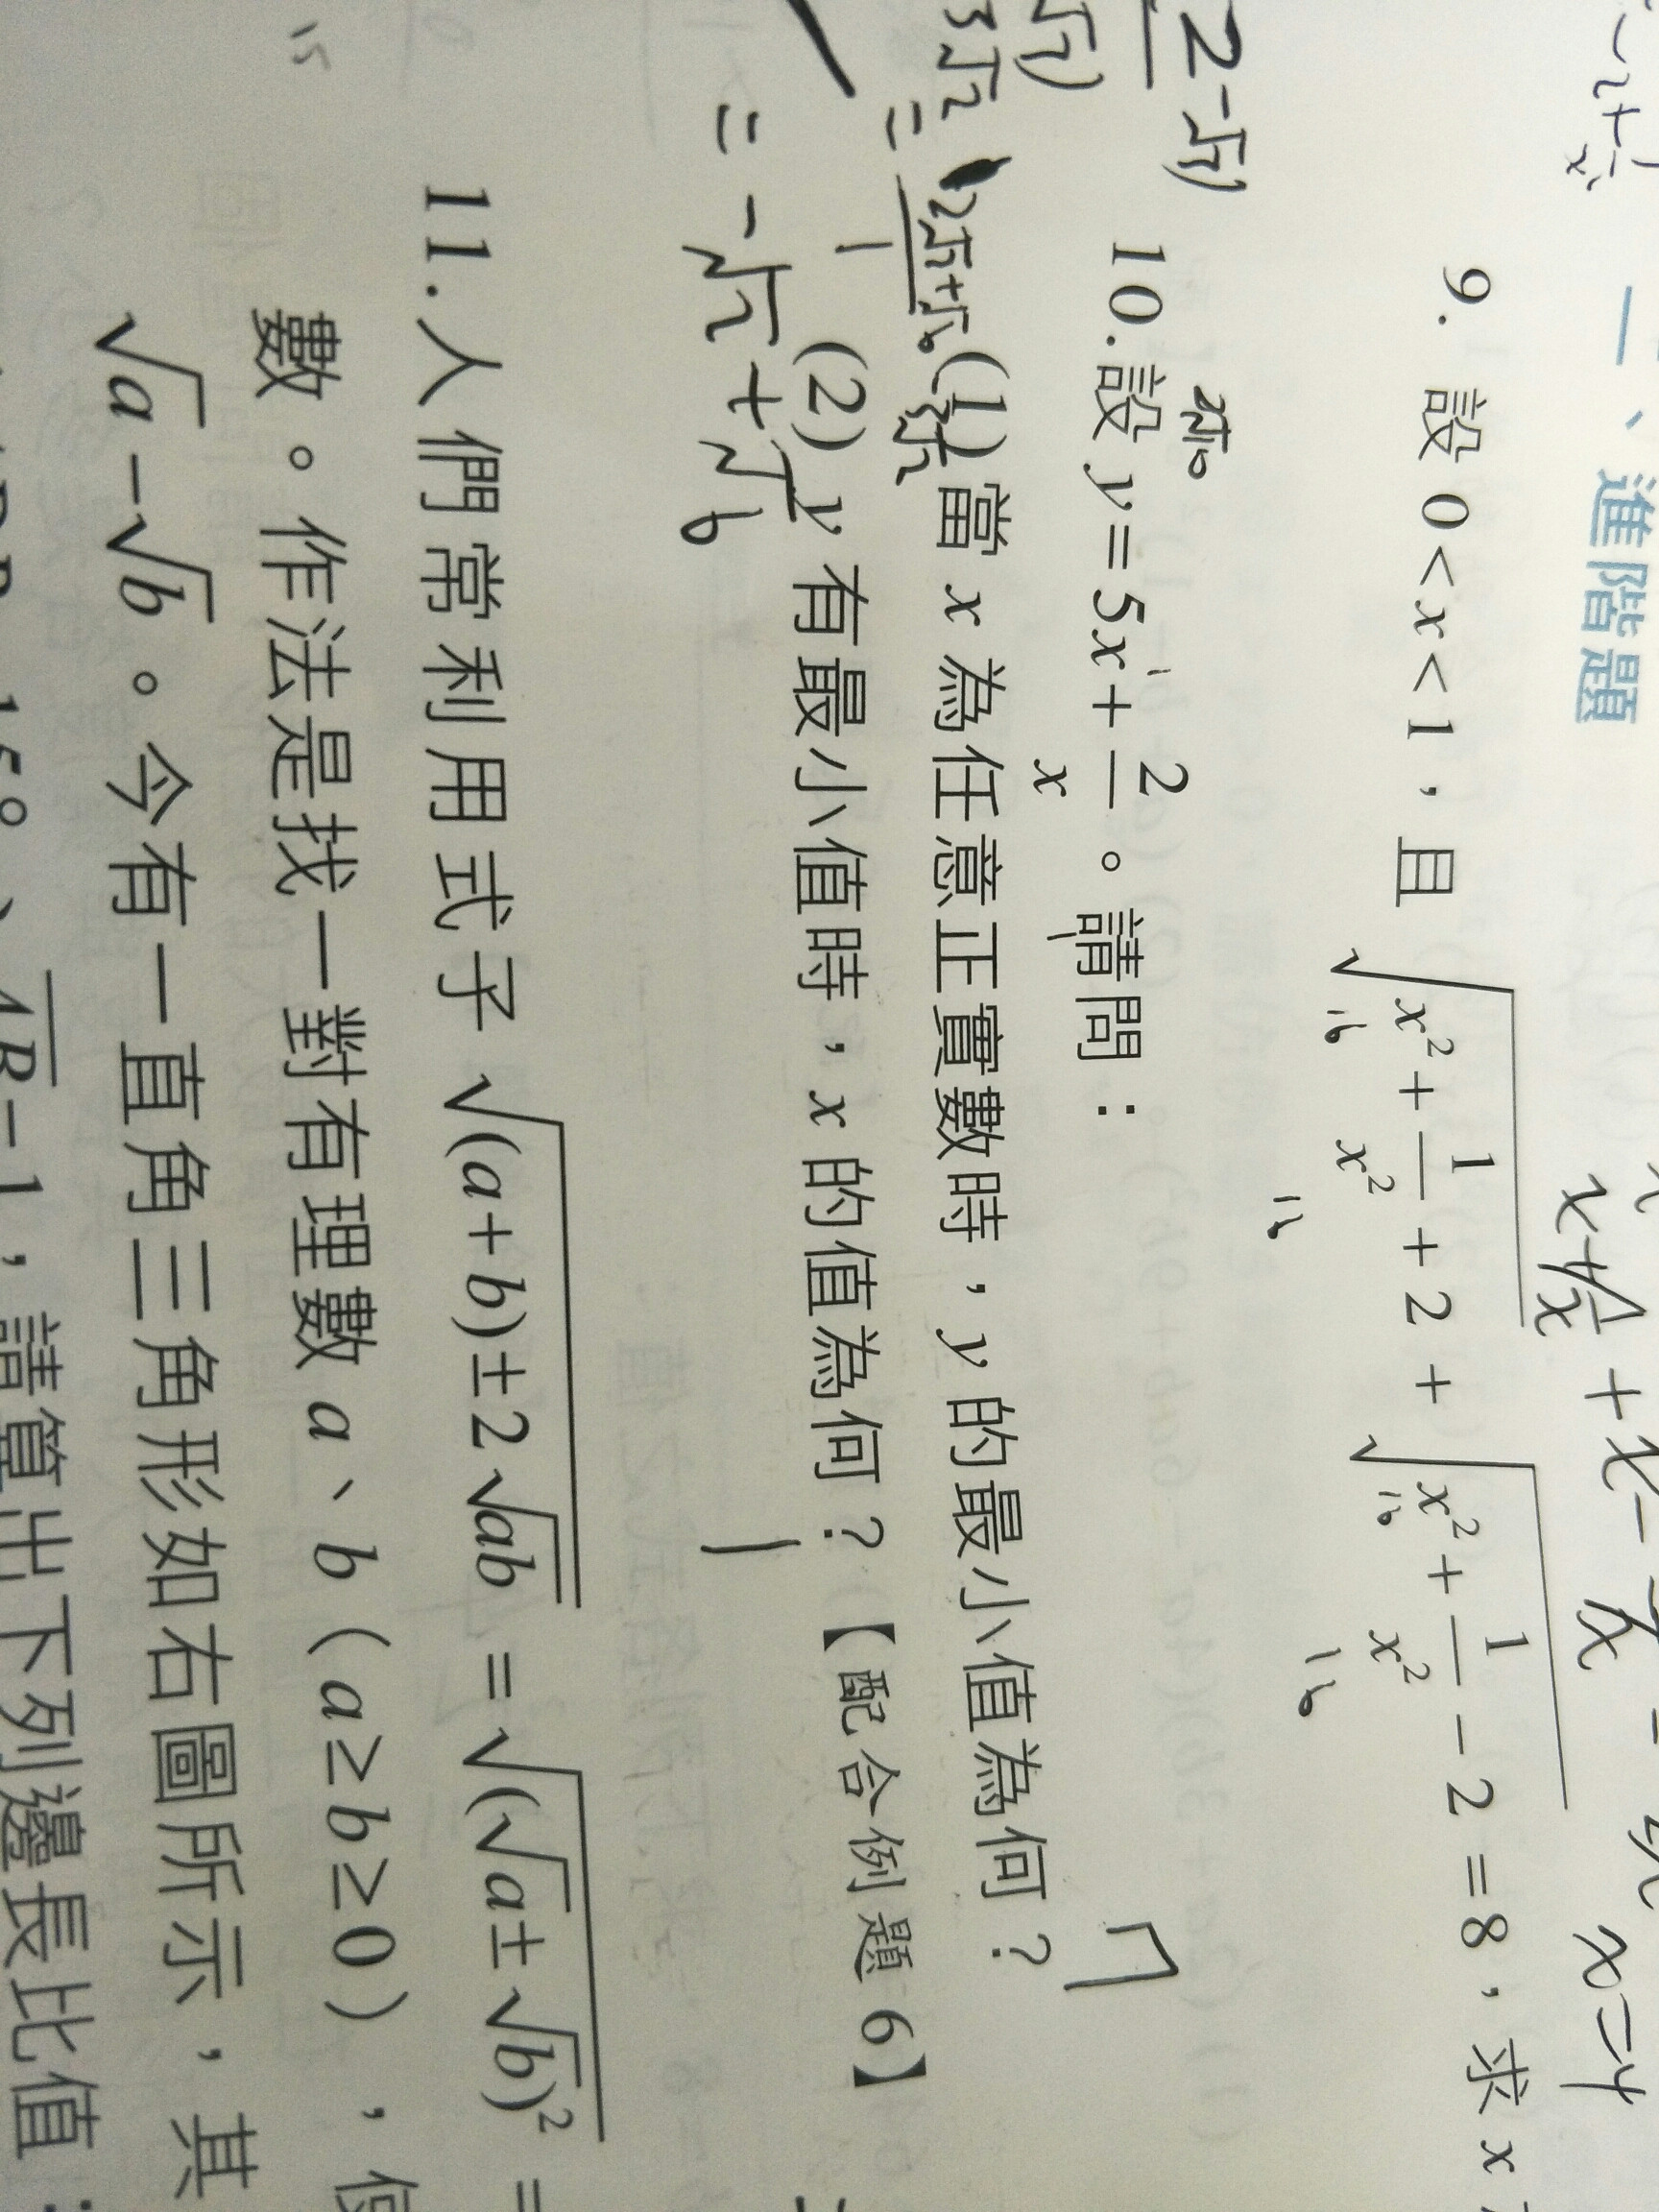 二、進階題
x + 1/x + x - 1/x = 8
x=4
9. 設 0<x<1，且 √(x²+1/x²+2) + √(x²+1/x²-2) =8，求 x
2√10
10.設 y=5x+2/x。請問：
(1)當 x 為任意正實數時，y 的最小值為何？
(2) y 有最小值時，x 的值為何？【配合例題 6】
= -√2+√6
11.人們常利用式子 √((a+b)±2√ab) =√((√a±√b)²) =
數。作法是找一對有理數 a、b（a≥b≥0），使
√a-√b。今有一直角三角形如右圖所示，其
AB=1，請算出下列邊長比值：